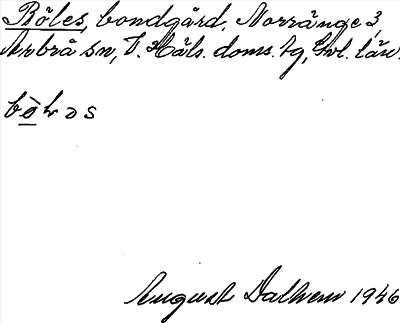 Böles, bondgård, Norränge 3,
Arbrå sn, V. Häls. doms. tg, Gvl. län.
August Dalhem 1946